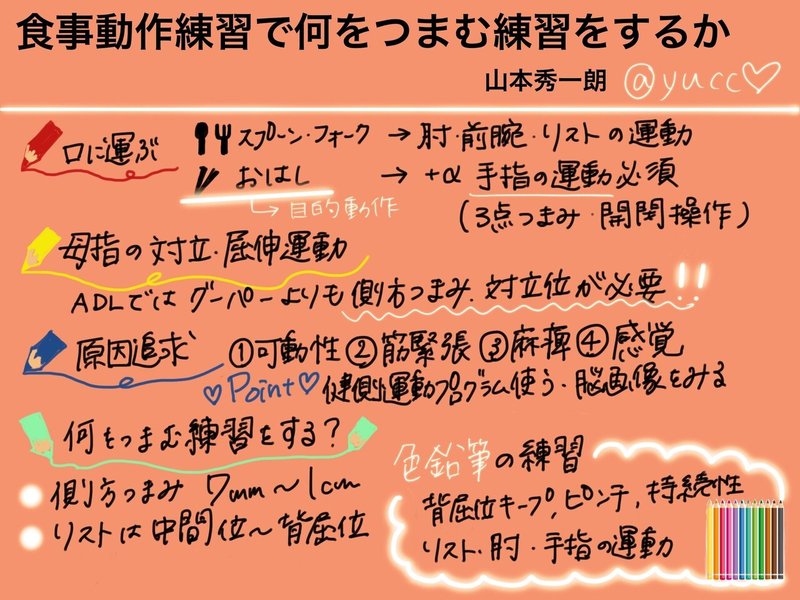 食事動作練習で何をつまむ練習をするか
山本秀一朗 @yucc♡
口に運ぶ
スプーン・フォーク → 肘・前腕・リストの運動
おはし → +α 手指の運動必須
↳目的動作
(3点つまみ・開閉操作)
母指の対立・屈伸運動
ADLではグーパーよりも側方つまみ、対立位が必要!!
原因追求 ①可動性 ②筋緊張 ③麻痺 ④感覚
♡Point♡ 健側運動プログラム使う・脳画像をみる
何をつまむ練習をする?
側方つまみ 7mm〜1cm
リストは中間位〜背屈位
色鉛筆の練習
背屈位キープ,ピンチ,持続性
リスト・肘・手指の運動